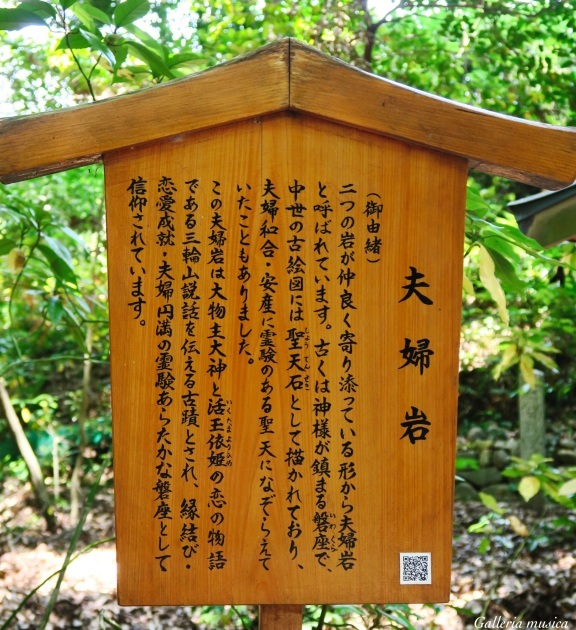 夫婦岩
(御由緒)
二つの岩が仲良く寄り添っている形から夫婦岩
と呼ばれています。古くは神様が鎮まる磐座で、
いわくら
中世の古絵図には聖天石として描かれており、
夫婦和合・安産に霊験のある聖天になぞらえて
いたこともありました。
この夫婦岩は大物主大神と活玉依姫の恋の物語
いくたまよりひめ
である三輪山説話を伝える古蹟とされ、縁結び・
恋愛成就・夫婦円満の霊験あらたかな磐座として
信仰されています。
Galleria musica